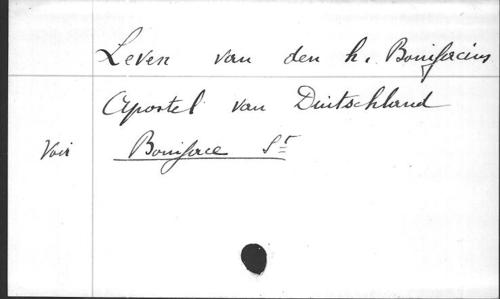 Leven van den h. Bonifacius
Apostel van Duitschland
Voir Boniface St